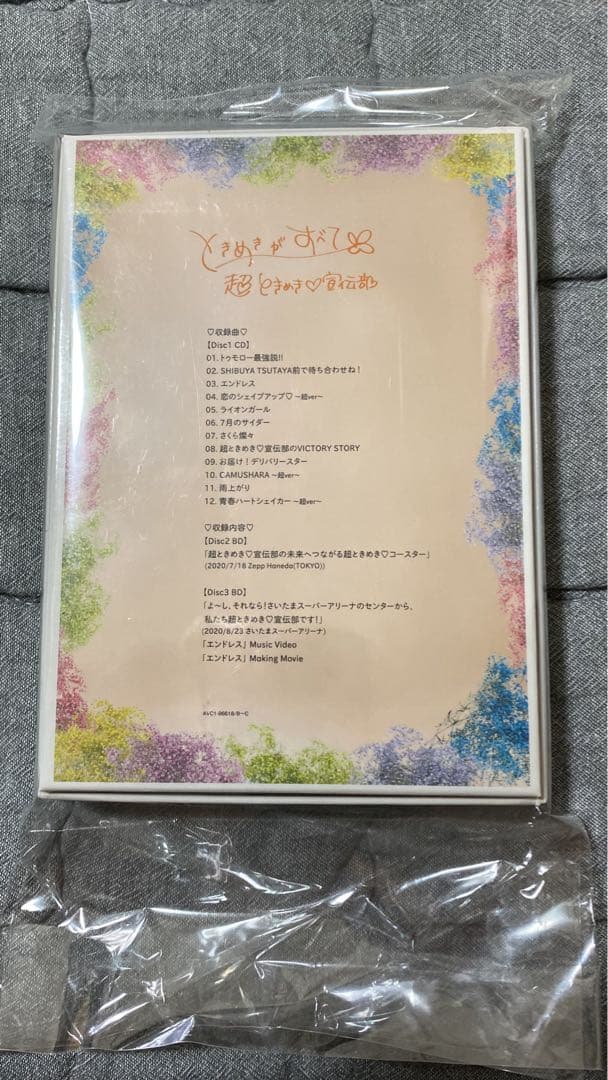 ときめきがすべて
超ときめき♡宣伝部
♡収録曲♡
【Disc1 CD】
01. トゥモロー最強説!!
02. SHIBUYA TSUTAYA前で待ち合わせね！
03. エンドレス
04. 恋のシェイプアップ♡ ～超ver～
05. ライオンガール
06. 7月のサイダー
07. さくら燦々
08. 超ときめき♡宣伝部のVICTORY STORY
09. お届け！デリバリースター
10. CAMUSHARA ～超ver～
11. 雨上がり
12. 青春ハートシェイカー ～超ver～
♡収録内容♡
【Disc2 BD】
「超ときめき♡宣伝部の未来へつながる超ときめき♡コースター」
(2020/7/18 Zepp Haneda(TOKYO))
【Disc3 BD】
「よ～し、それなら！さいたまスーパーアリーナのセンターから、
私たち超ときめき♡宣伝部です！」
(2020/8/23 さいたまスーパーアリーナ)
「エンドレス」Music Video
「エンドレス」Making Movie
AVC1-96618/B～C